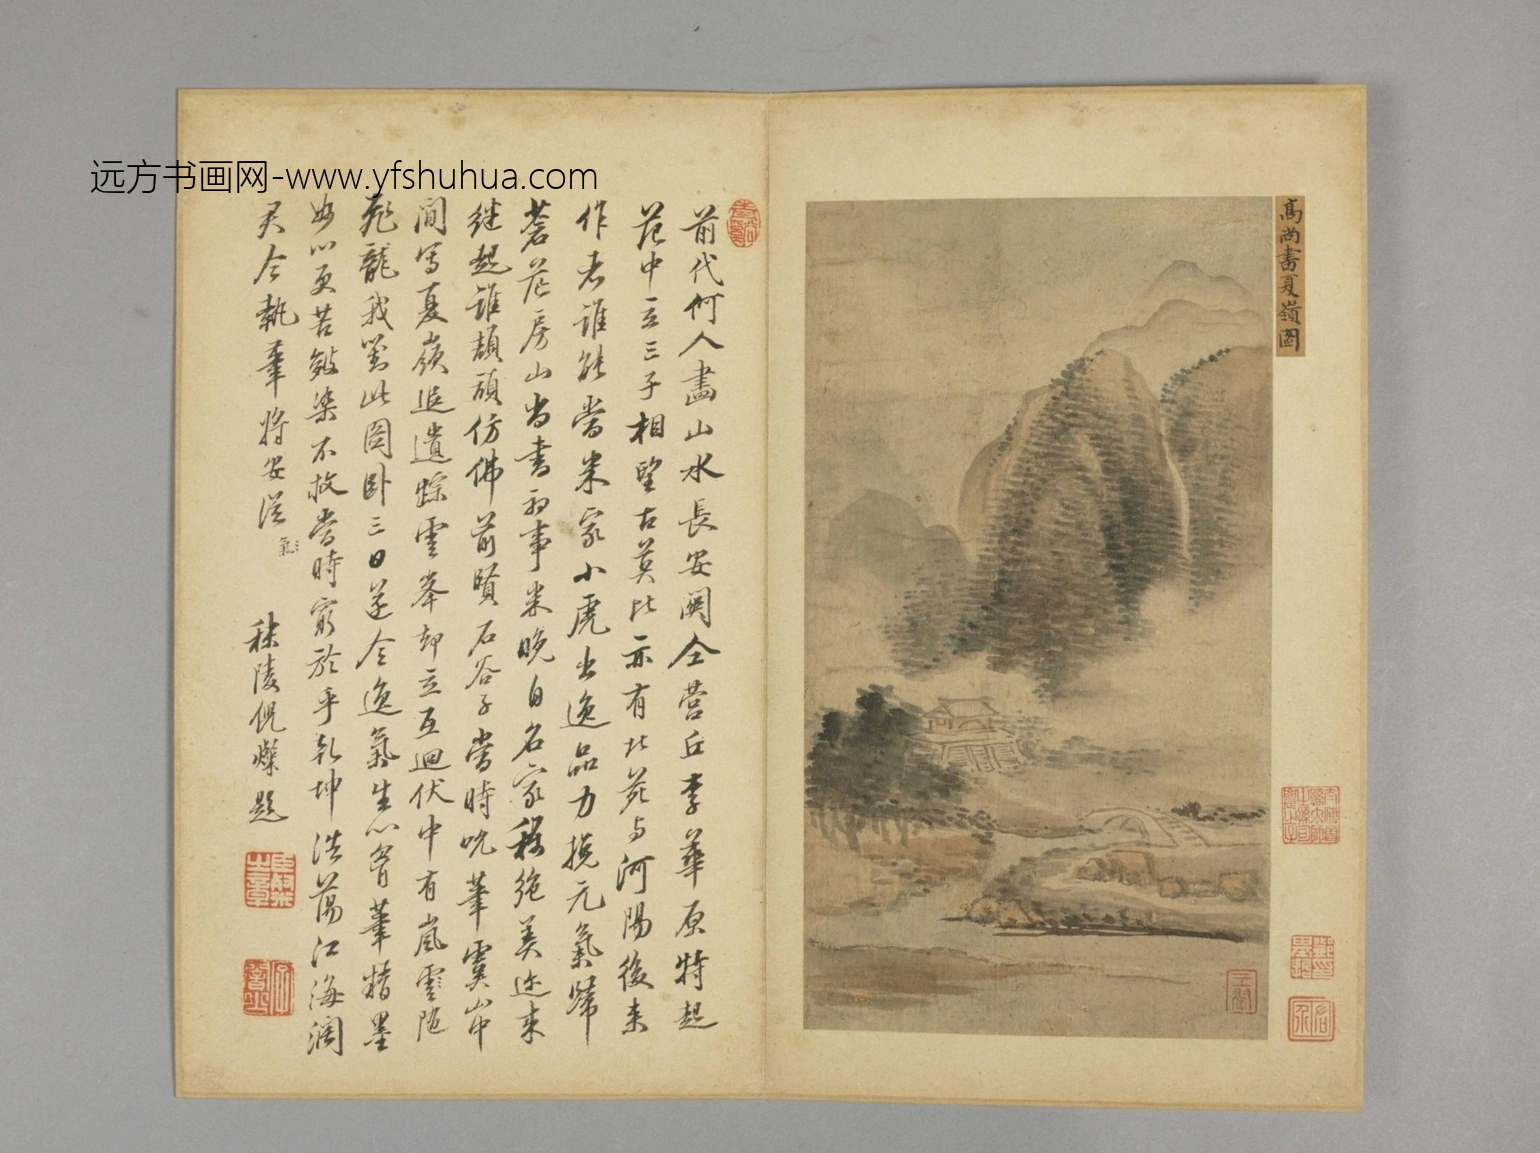 远方书画网-www.yfshuhua.com
高尚書夏嶺圖
前代何人畵山水長安關仝營丘李華原特起
范中立三子相望古莫比亦有北苑与河陽後来
作者誰能當米家小虎出逸品力挽元氣歸
蒼茫房山尚書初事米晚自名家稱絶美迩来
继起誰頡頏仿佛前賢石谷子當時吮筆虞山中
間寫夏嶺追遺踪雲峯却立互迴伏中有嵐霏隨
飛龍我對此圖卧三日遂令逸氣生心胷筆精墨
妙心更苦皴染不放當時窮於乎乾坤浩蕩江海濶
君今執筆將安從
氣
秣陵倪燦題